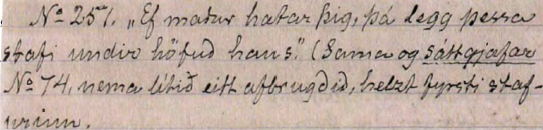 No 257. „Ef maður hatar þig, þá legg þessa
stafi undir höfuð hans." (Sama og sáttgjafar
No 74, nema lítið eitt afbrugðið, helzt fyrsti staf-
urinn.